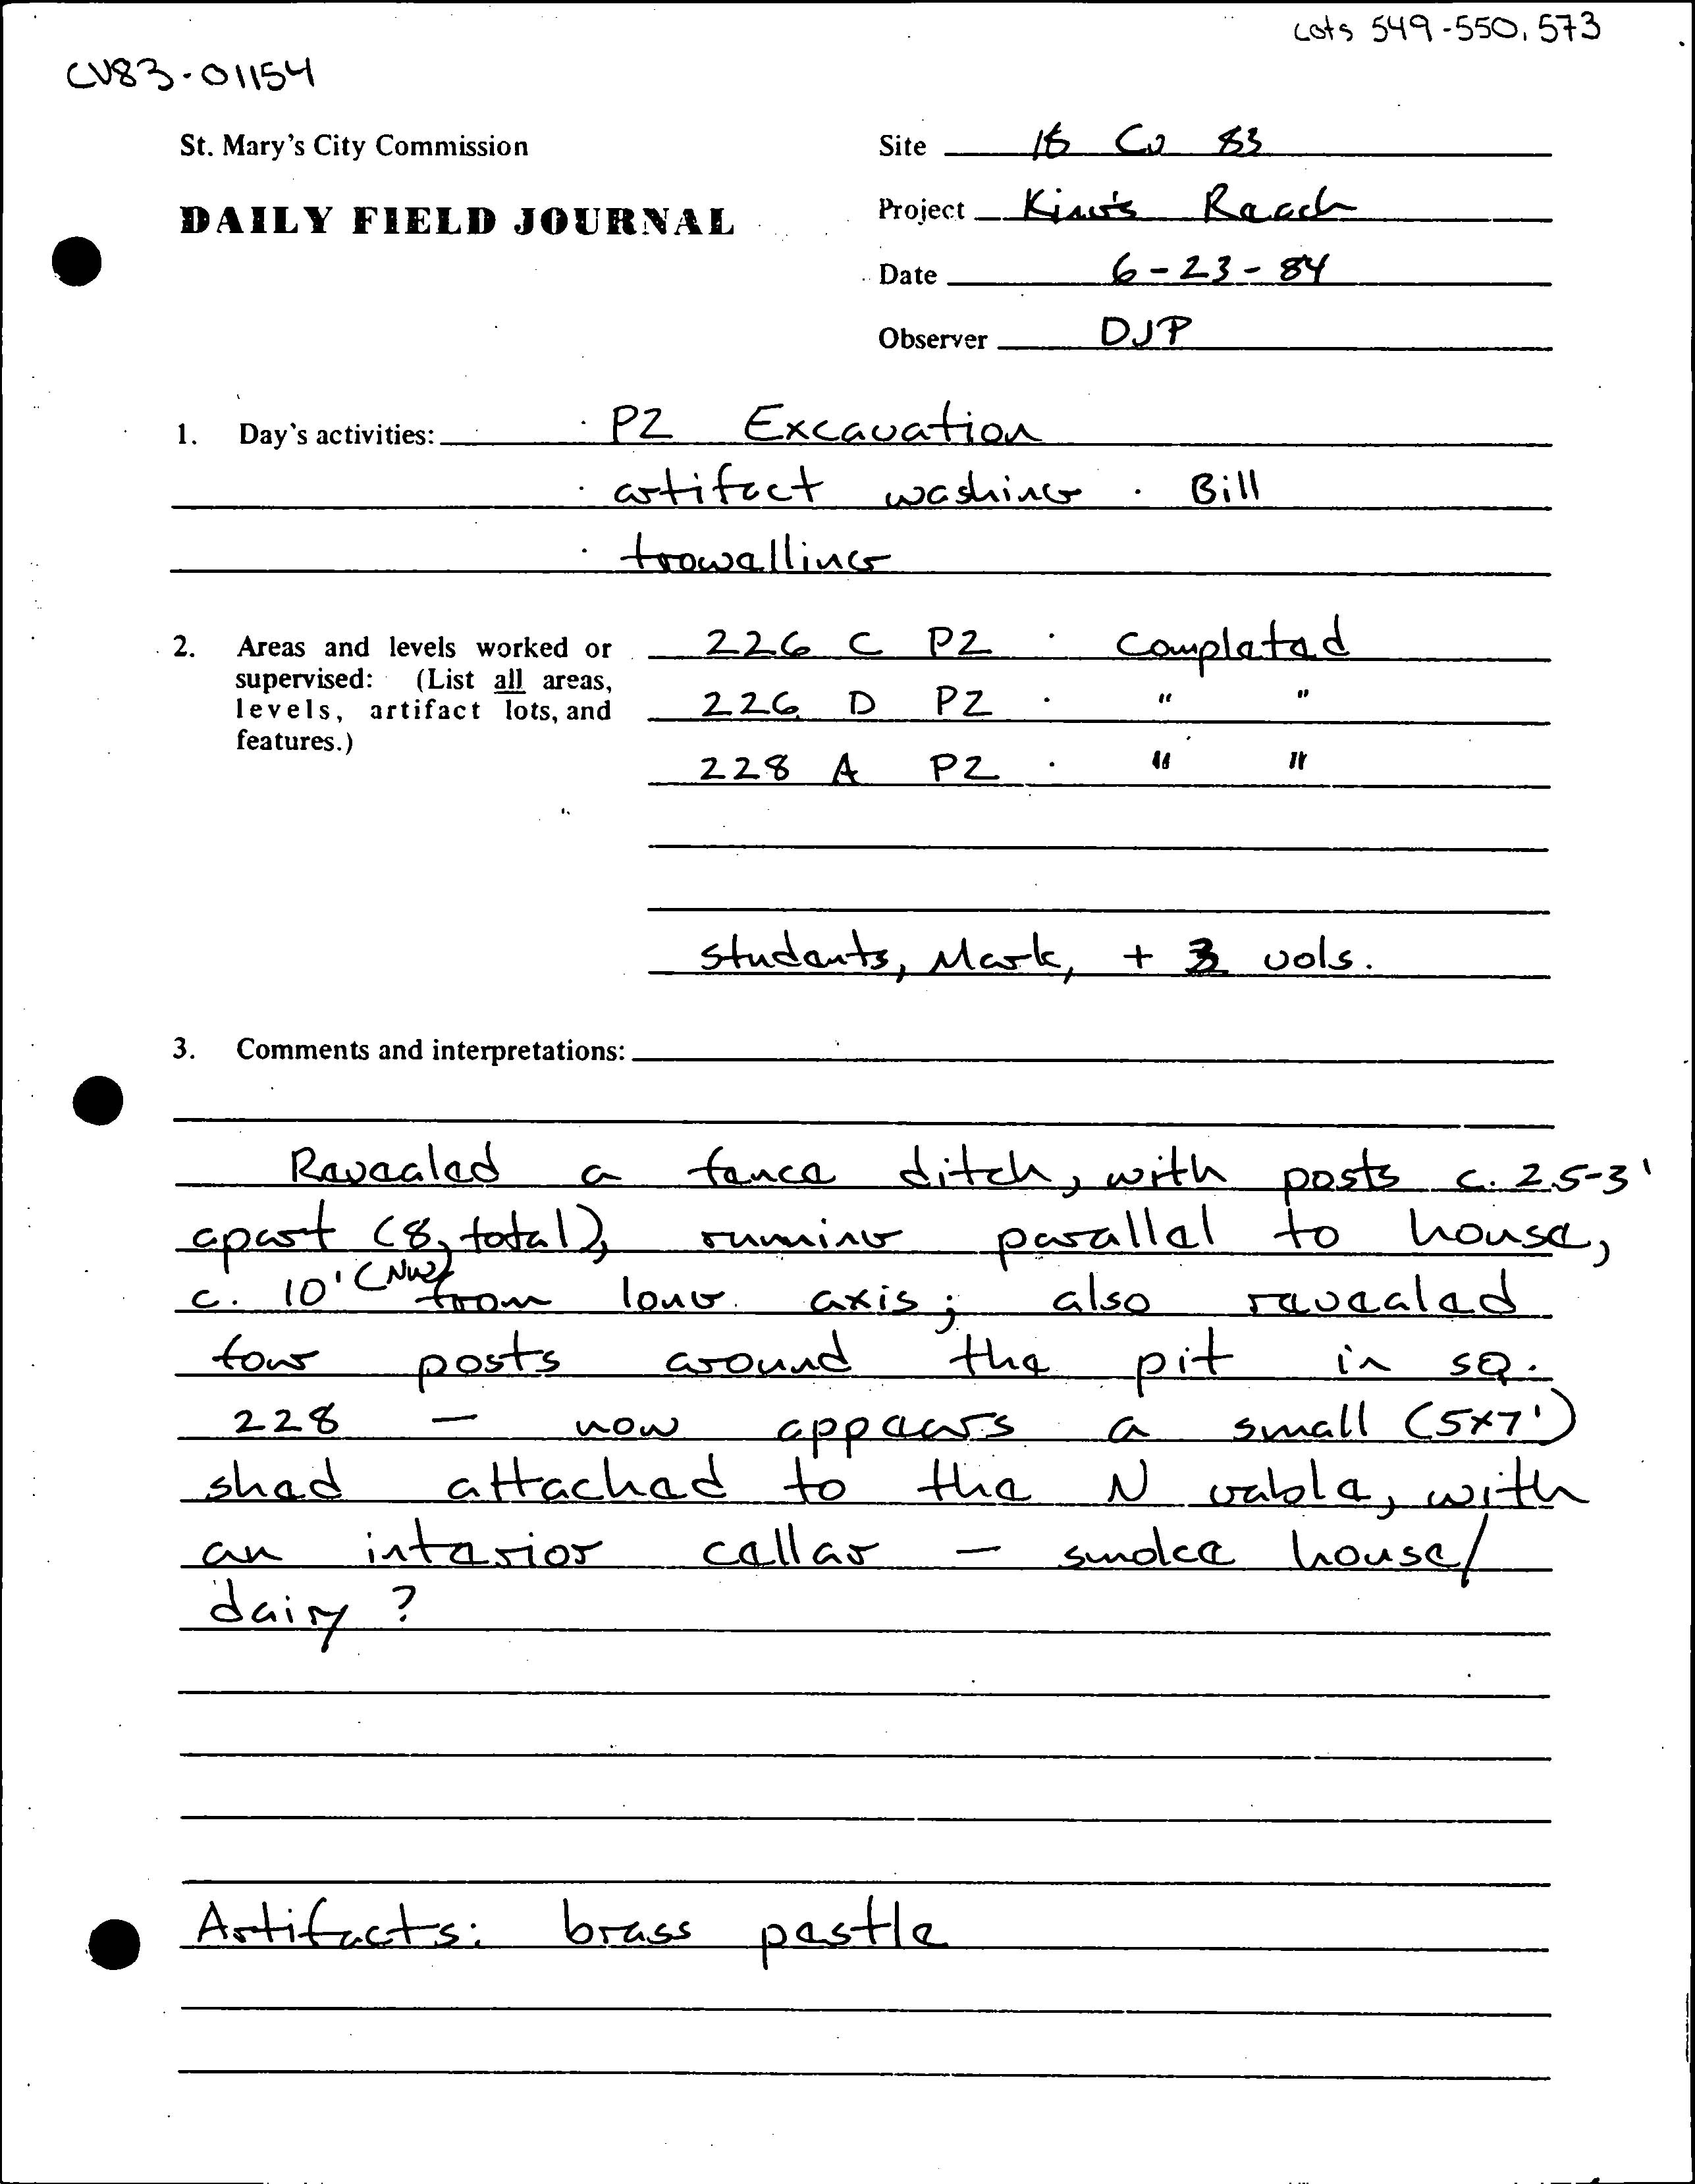 Lots 549-550, 573
CV83-01154
St. Mary's City Commission
Site 18 Cv 83
DAILY FIELD JOURNAL
Project King's Reach
Date 6-23-84
Observer DJP
1. Day's activities: · PZ Excavation
· artifact washing · Bill
· trowelling
2. Areas and levels worked or supervised: (List all areas, levels, artifact lots, and features.)
226 C PZ · Completed
226 D PZ · " "
228 A PZ · " "
students, Mark, + 3 vols.
3. Comments and interpretations:
Revealed a fence ditch, with posts c. 2.5-3'
apart (8, total), running parallel to house,
c. 10' (NW) from long axis; also revealed
four posts around the pit in sq.
228 — now appears a small (5x7')
shed attached to the N gable, with
an interior cellar — smoke house/
dairy?
Artifacts: brass pestle